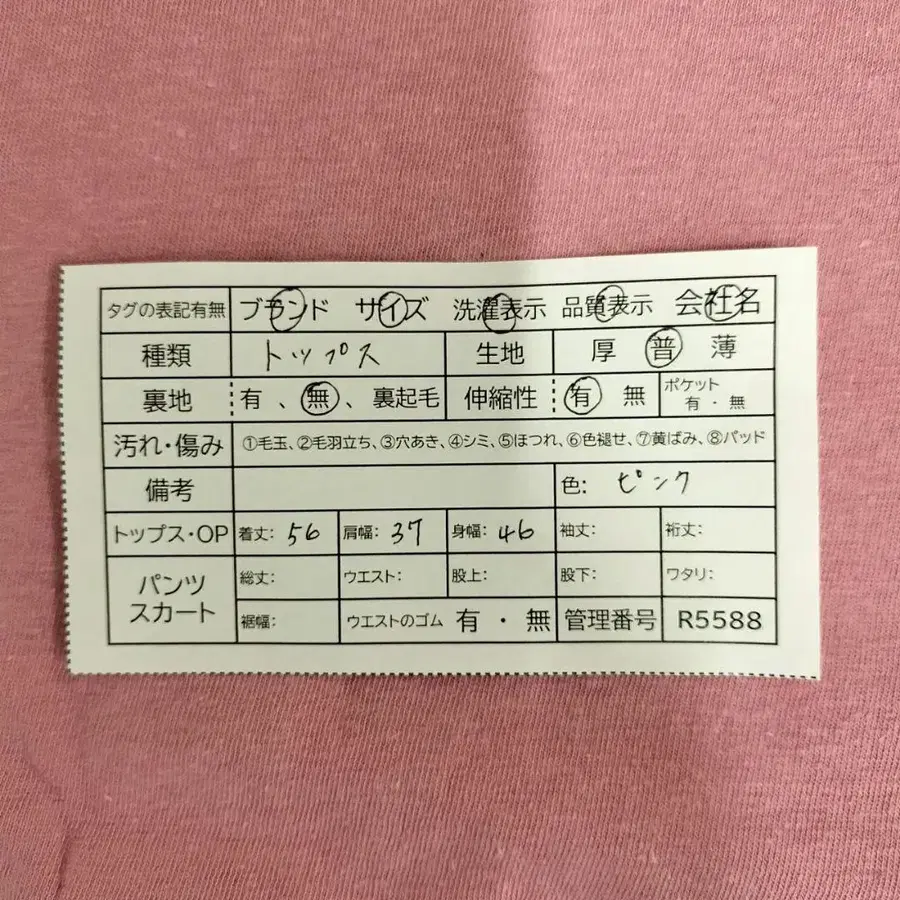 タグの表記有無 ブランド サイズ 洗濯表示 品質表示 会社名
種類 トップス 生地 厚 普 薄
裏地 有 、 無 、 裏起毛 伸縮性 有 無 ポケット 有 ・ 無
汚れ・傷み ①毛玉、②毛羽立ち、③穴あき、④シミ、⑤ほつれ、⑥色褪せ、⑦黄ばみ、⑧パッド
備考 色: ピンク
トップス・OP 着丈: 56 肩幅: 37 身幅: 46 袖丈: 裄丈:
パンツ スカート 総丈: ウエスト: 股上: 股下: ワタリ:
裾幅: ウエストのゴム 有 ・ 無 管理番号 R5588